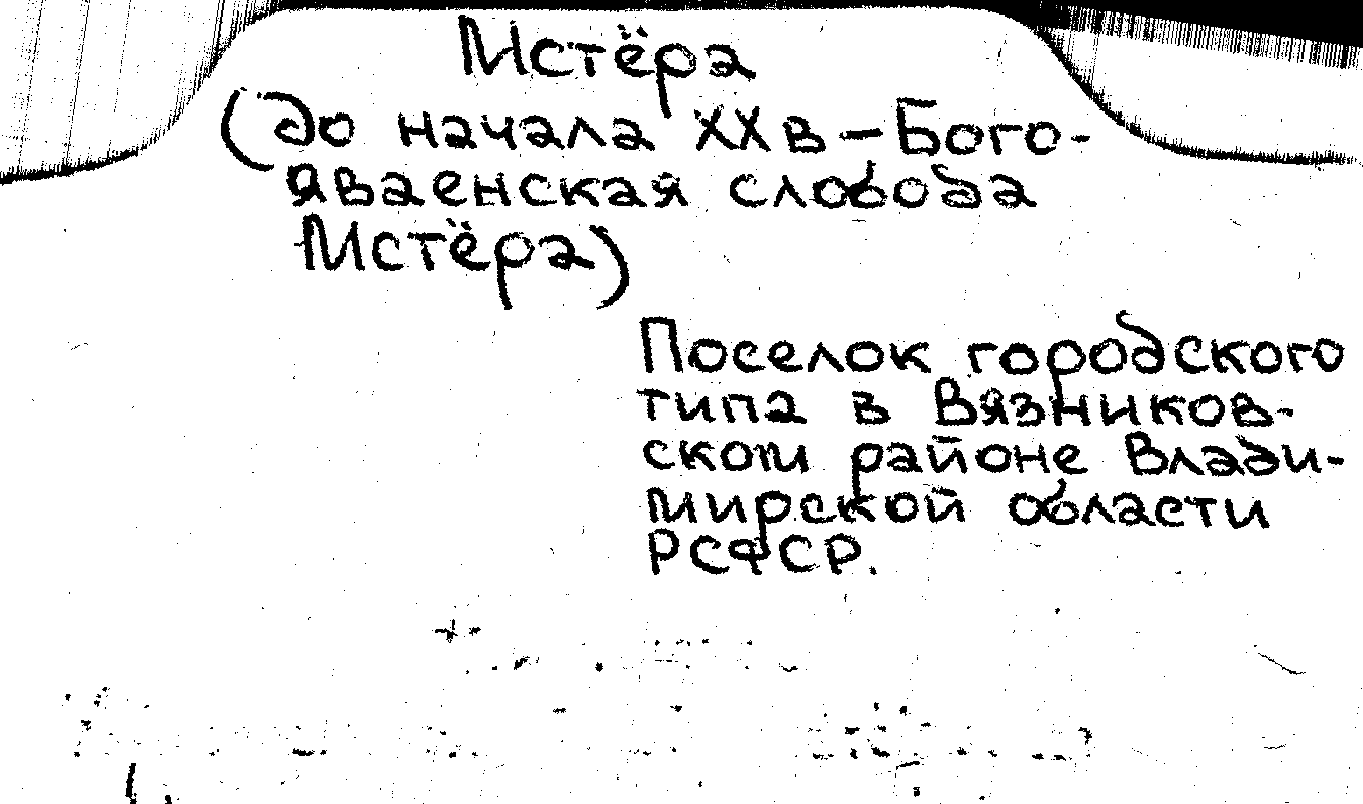 Мстёра
(до начала XX в – Бого-
явленская слобода
Мстёра)
Поселок городского
типа в Вязников-
ском районе Влади-
мирской области
РСФСР.